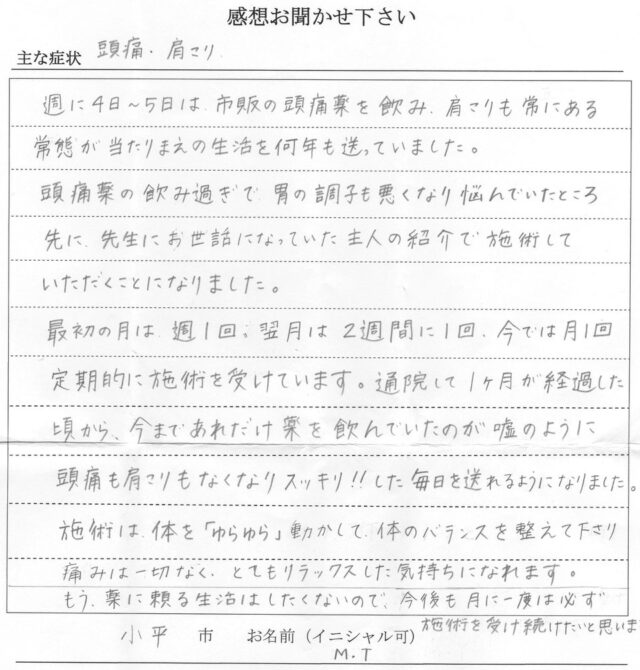 感想お聞かせ下さい
主な症状 頭痛・肩こり
週に4日～5日は、市販の頭痛薬を飲み、肩こりも常にある
常態が当たりまえの生活を何年も送っていました。
頭痛薬の飲み過ぎで、胃の調子も悪くなり悩んでいたところ
先に、先生にお世話になっていた主人の紹介で施術して
いただくことになりました。
最初の月は、週1回、翌月は2週間に1回、今では月1回
定期的に施術を受けています。通院して1ヶ月が経過した
頃から、今まであれだけ薬を飲んでいたのが嘘のように
頭痛も肩こりもなくなりスッキリ!!した毎日を送れるようになりました。
施術は、体を「ゆらゆら」動かして、体のバランスを整えて下さり
痛みは一切なく、とてもリラックスした気持ちになれます。
もう、薬に頼る生活はしたくないので、今後も月に一度は必ず
施術を受け続けたいと思いま
小平 市 お名前（イニシャル可） M.T